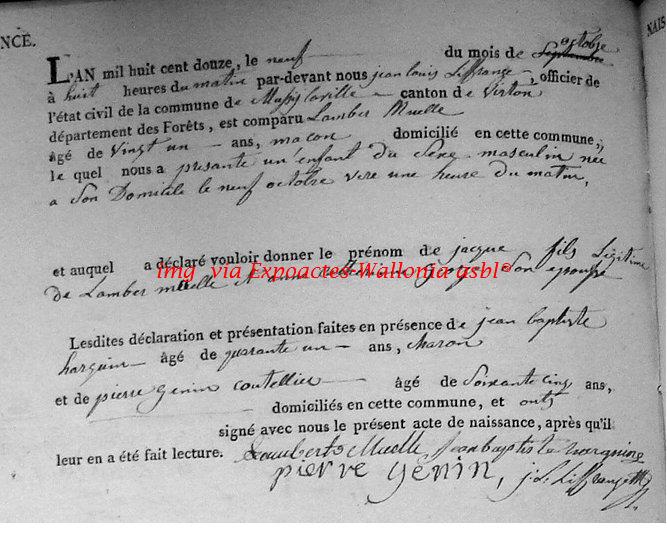 NCE.
NAIS
L'AN mil huit cent douze, le neuf du mois de Septembre octobre
à huit heures du matin par-devant nous jean louis Liffrange, officier de
l'état civil de la commune de Mussy laville canton de Virton
département des Forêts, est comparu Lamber Muelle
âgé de vingt un ans, macon domicilié en cette commune,
le quel nous a presante un enfant du sexe masculin née
a son Domicile le neuf octobre vere une heure du matin,
et auquel a déclaré vouloir donner le prénom de jacque fils Légitime
img via Expoactes-Wallonia asbl°
de Lamber muelle et anne george son epouse
Lesdites déclaration et présentation faites en présence de jean baptiste
âgé de quarante un ans, charon
et de pierre genin coutellier âgé de soixante cinq ans,
domiciliés en cette commune, et onts
signé avec nous le présent acte de naissance, après qu'il
leur en a été fait lecture. Lamberts Muelle Jean baptiste
pierre genin, j. L. Liffrange